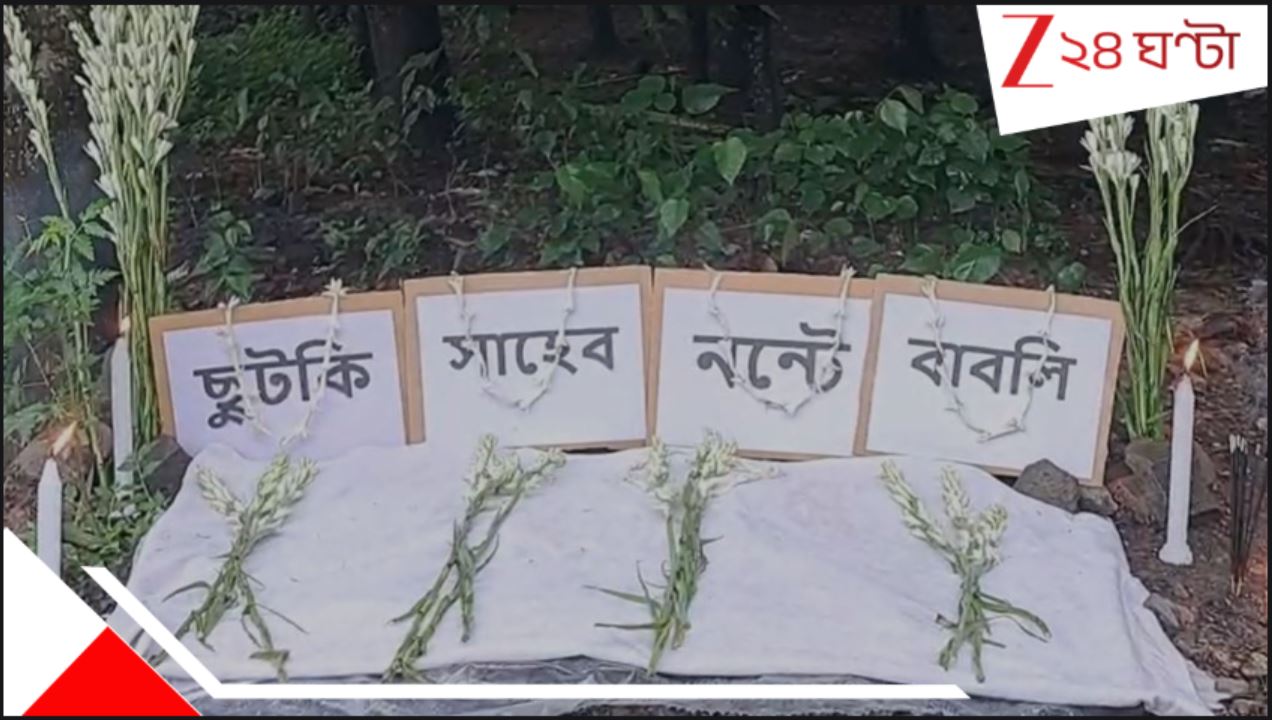 Z ২৪ ঘণ্টা
ছুটকি
সাহেব
নন্টে
বাবলি